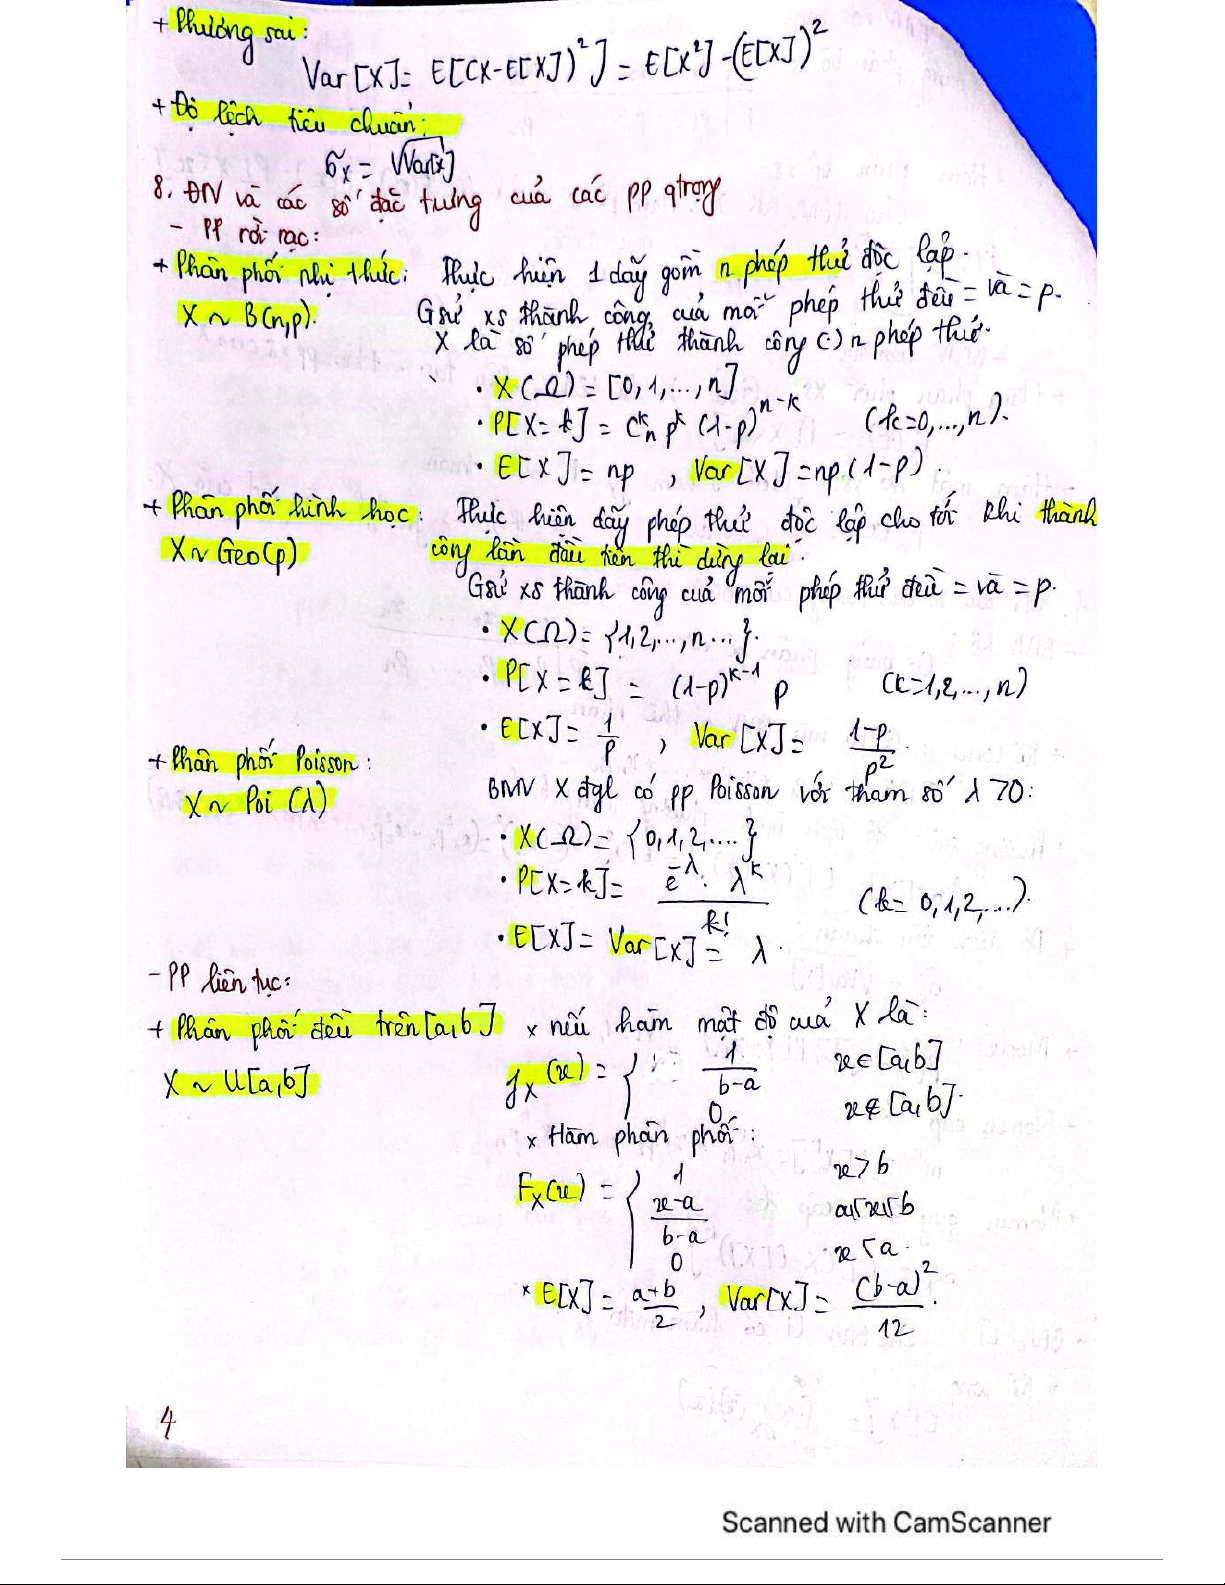 + Phương sai:
Var[X] = E[(X-E[X])²] = E[X²] - (E[X])²
+ Độ lệch tiêu chuẩn:
σ_X = √Var[X]
8. ĐN và các số đặc trưng của các PP qtrọng
- PP rời rạc:
+ Phân phối nhị thức: Thực hiện 1 dãy gồm n phép thử độc lập.
X ~ B(n,p). Gsử xs thành công của mỗi phép thử đều = và = p.
X là số phép thử thành công (-) n phép thử.
• X(Ω) = [0, 1, ..., n]
• P[X = k] = C_n^k p^k (1-p)^{n-k} (k=0,...,n).
• E[X] = np , Var[X] = np(1-p).
+ Phân phối hình học: Thực hiện dãy phép thử độc lập cho tới khi thành
X ~ Geo(p) công lần đầu tiên thì dừng lại.
Gsử xs thành công của mỗi phép thử đều = và = p.
• X(Ω) = {1,2,..., n...}.
• P[X = k] = (1-p)^{k-1} p (k=1,2,...,n)
• E[X] = 1/p , Var[X] = (1-p)/p².
+ Phân phối Poisson:
X ~ Poi(λ) BNN X đgl có pp Poisson với tham số λ > 0:
• X(Ω) = {0,1,2,....}
• P[X = k] = (e^{-λ} . λ^k)/k! (k= 0,1,2,...).
• E[X] = Var[X] = λ.
- PP liên tục:
+ Phân phối đều trên [a,b] × nếu hàm mật độ của X là:
X ~ U[a,b] f_X(x) = { 1/(b-a) x∈[a,b]
0 x∉[a,b].
× Hàm phân phối:
F_X(x) = { 1 x > b
(x-a)/(b-a) a≤x≤b
0 x < a.
* E[X] = (a+b)/2 , Var[X] = (b-a)²/12.
4
Scanned with CamScanner